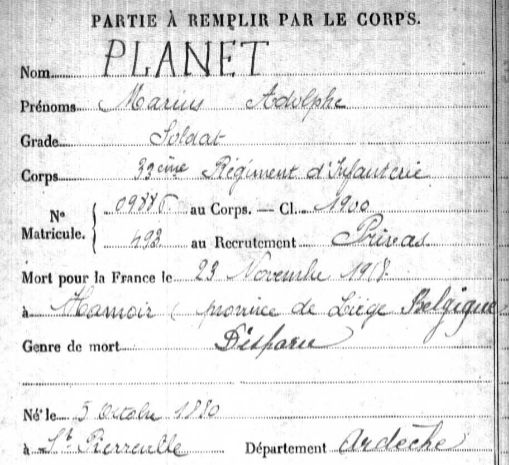 PARTIE À REMPLIR PAR LE CORPS.
Nom PLANET
Prénoms Marius Adolphe
Grade Soldat
Corps 32ème Régiment d'Infanterie
Nº Matricule. { au Corps. — Cl. 1900
493 au Recrutement Privas
Mort pour la France le 23 Novembre 1918
à Hamoir (province de Liège Belgique
Genre de mort Disparu
Né le 5 Octobre 1880
à St Pierreville Département Ardèche